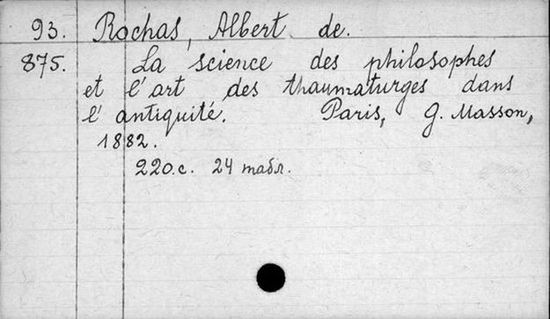 93. Rochas, Albert de.
875. La science des philosophes
et l'art des thaumaturges dans
l'antiquité. Paris, G. Masson,
1882.
220.с. 24 табл.